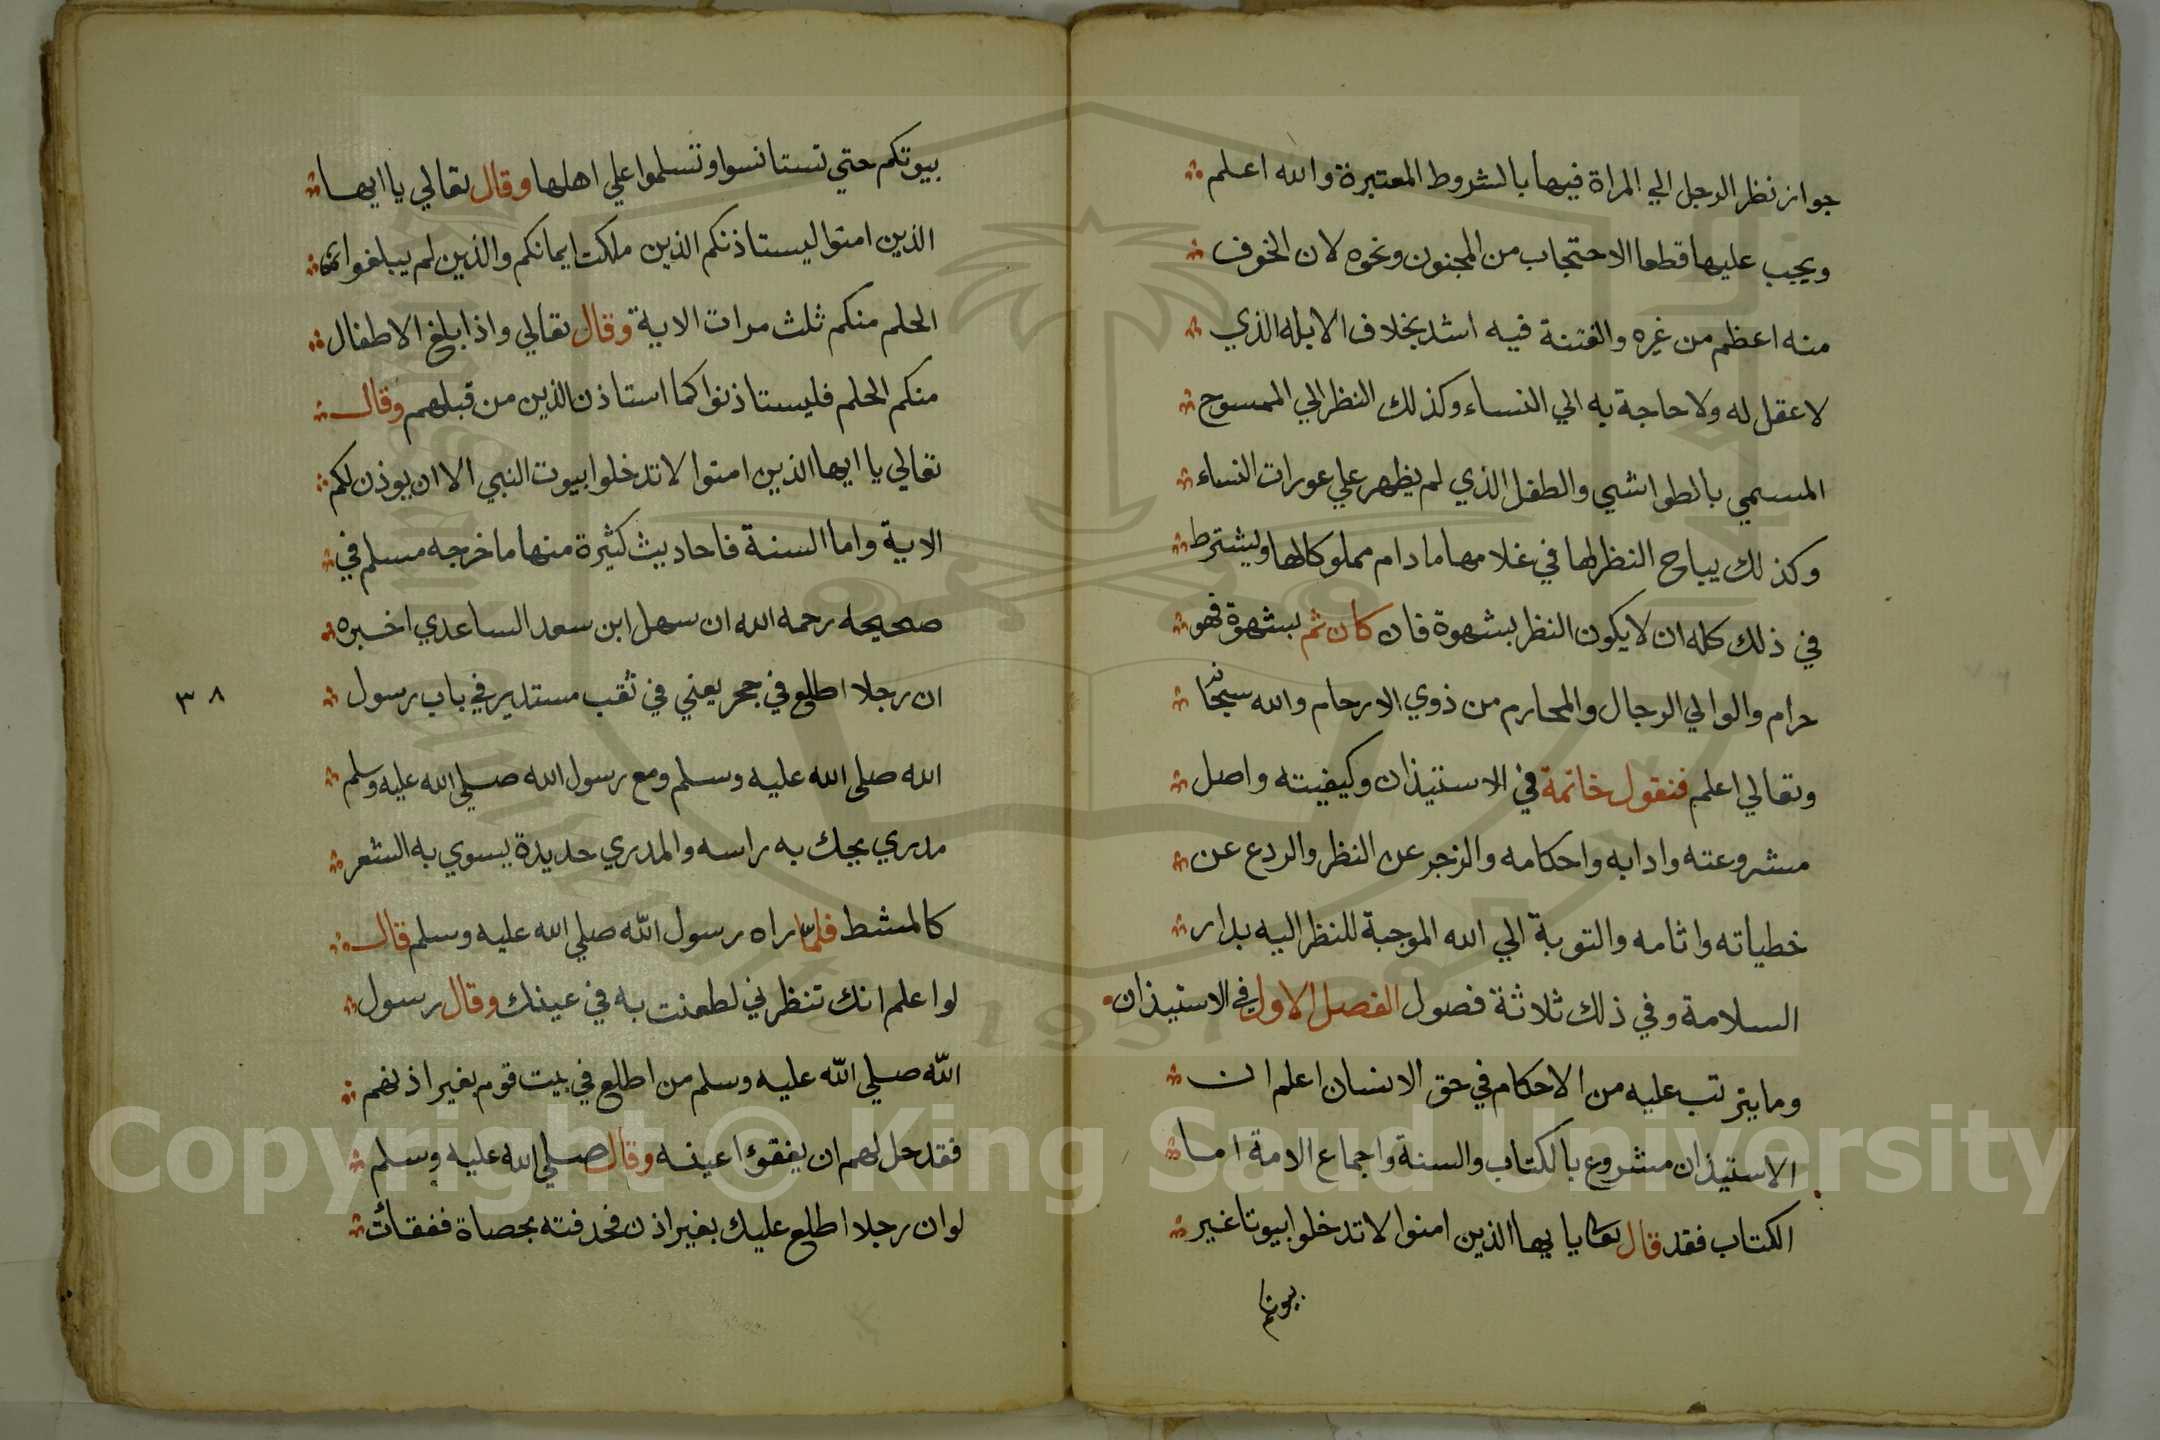 جواز نظر الرجل الي المراة فيها بالشروط المعتبرة والله اعلم
ويجب عليها قطعا الاحتجاب من المجنون ونحوه لان الخوف
منه اعظم من غيره والفتنة فيه اشد بخلاف الابله الذي
لا عقل له ولا حاجة به الي النساء وكذلك النظر الي الممسوح
المسمي بالطواشي والطفل الذي لم يظهر علي عورات النساء
وكذلك يباح النظر لها في غلامها ما دام مملوكا لها ويشترط
في ذلك كله ان لا يكون النظر بشهوة فان كان ثم بشهوة فهو
حرام والوالي الرجال والمحارم من ذوي الارحام والله سبحانه
وتعالي اعلم فنقول خاتمة في الاستيذان وكيفيته واصل
مشروعته وادابه واحكامه والزجر عن النظر والردع عن
خطياته واثامه والتوبة الي الله الموجبة للنظر اليه بدار
السلامة وفي ذلك ثلاثة فصول الفصل الاول في الاستيذان
وما يترتب عليه من الاحكام في حق الانسان اعلم ان
الاستيذان مشروع بالكتاب والسنة واجماع الامة اما
الكتاب فقد قال تعا يا يها الذين امنوا لا تدخلوا بيوتا غير
بيوتكم
بيوتكم حتي تستانسوا وتسلموا علي اهلها وقال تعالي يا ايها
الذين امنوا ليستاذنكم الذين ملكت ايمانكم والذين لم يبلغوا
الحلم منكم ثلث مرات الاية وقال تعالي واذا بلغ الاطفال
منكم الحلم فليستاذنوا كما استاذن الذين من قبلهم وقال
تعالي يا ايها الذين امنوا لا تدخلوا بيوت النبي الا ان يوذن لكم
الاية واما السنة فاحاديث كثيرة منها ما خرجه مسلم في
صحيحه رحمه الله ان سهل ابن سعد الساعدي اخبره
ان رجلا اطلع في جحر يعني في ثقب مستدير في باب رسول
٣٨
الله صلى الله عليه وسلم ومع رسول الله صلي الله عليه وسلم
مدري يحك به راسه والمدري حديدة يسوي به الشعر
كالمشط فلما راه رسول الله صلي الله عليه وسلم قال
لو اعلم انك تنظرني لطعنت به في عينك وقال رسول
الله صلي الله عليه وسلم من اطلع في بيت قوم بغير اذنهم
فقد حل لهم ان يفقوا عينه وقال صلي الله عليه وسلم
لو ان رجلا اطلع عليك بغير اذن فخدفته بحصاة ففقات
Copyright © King Saud University
1957